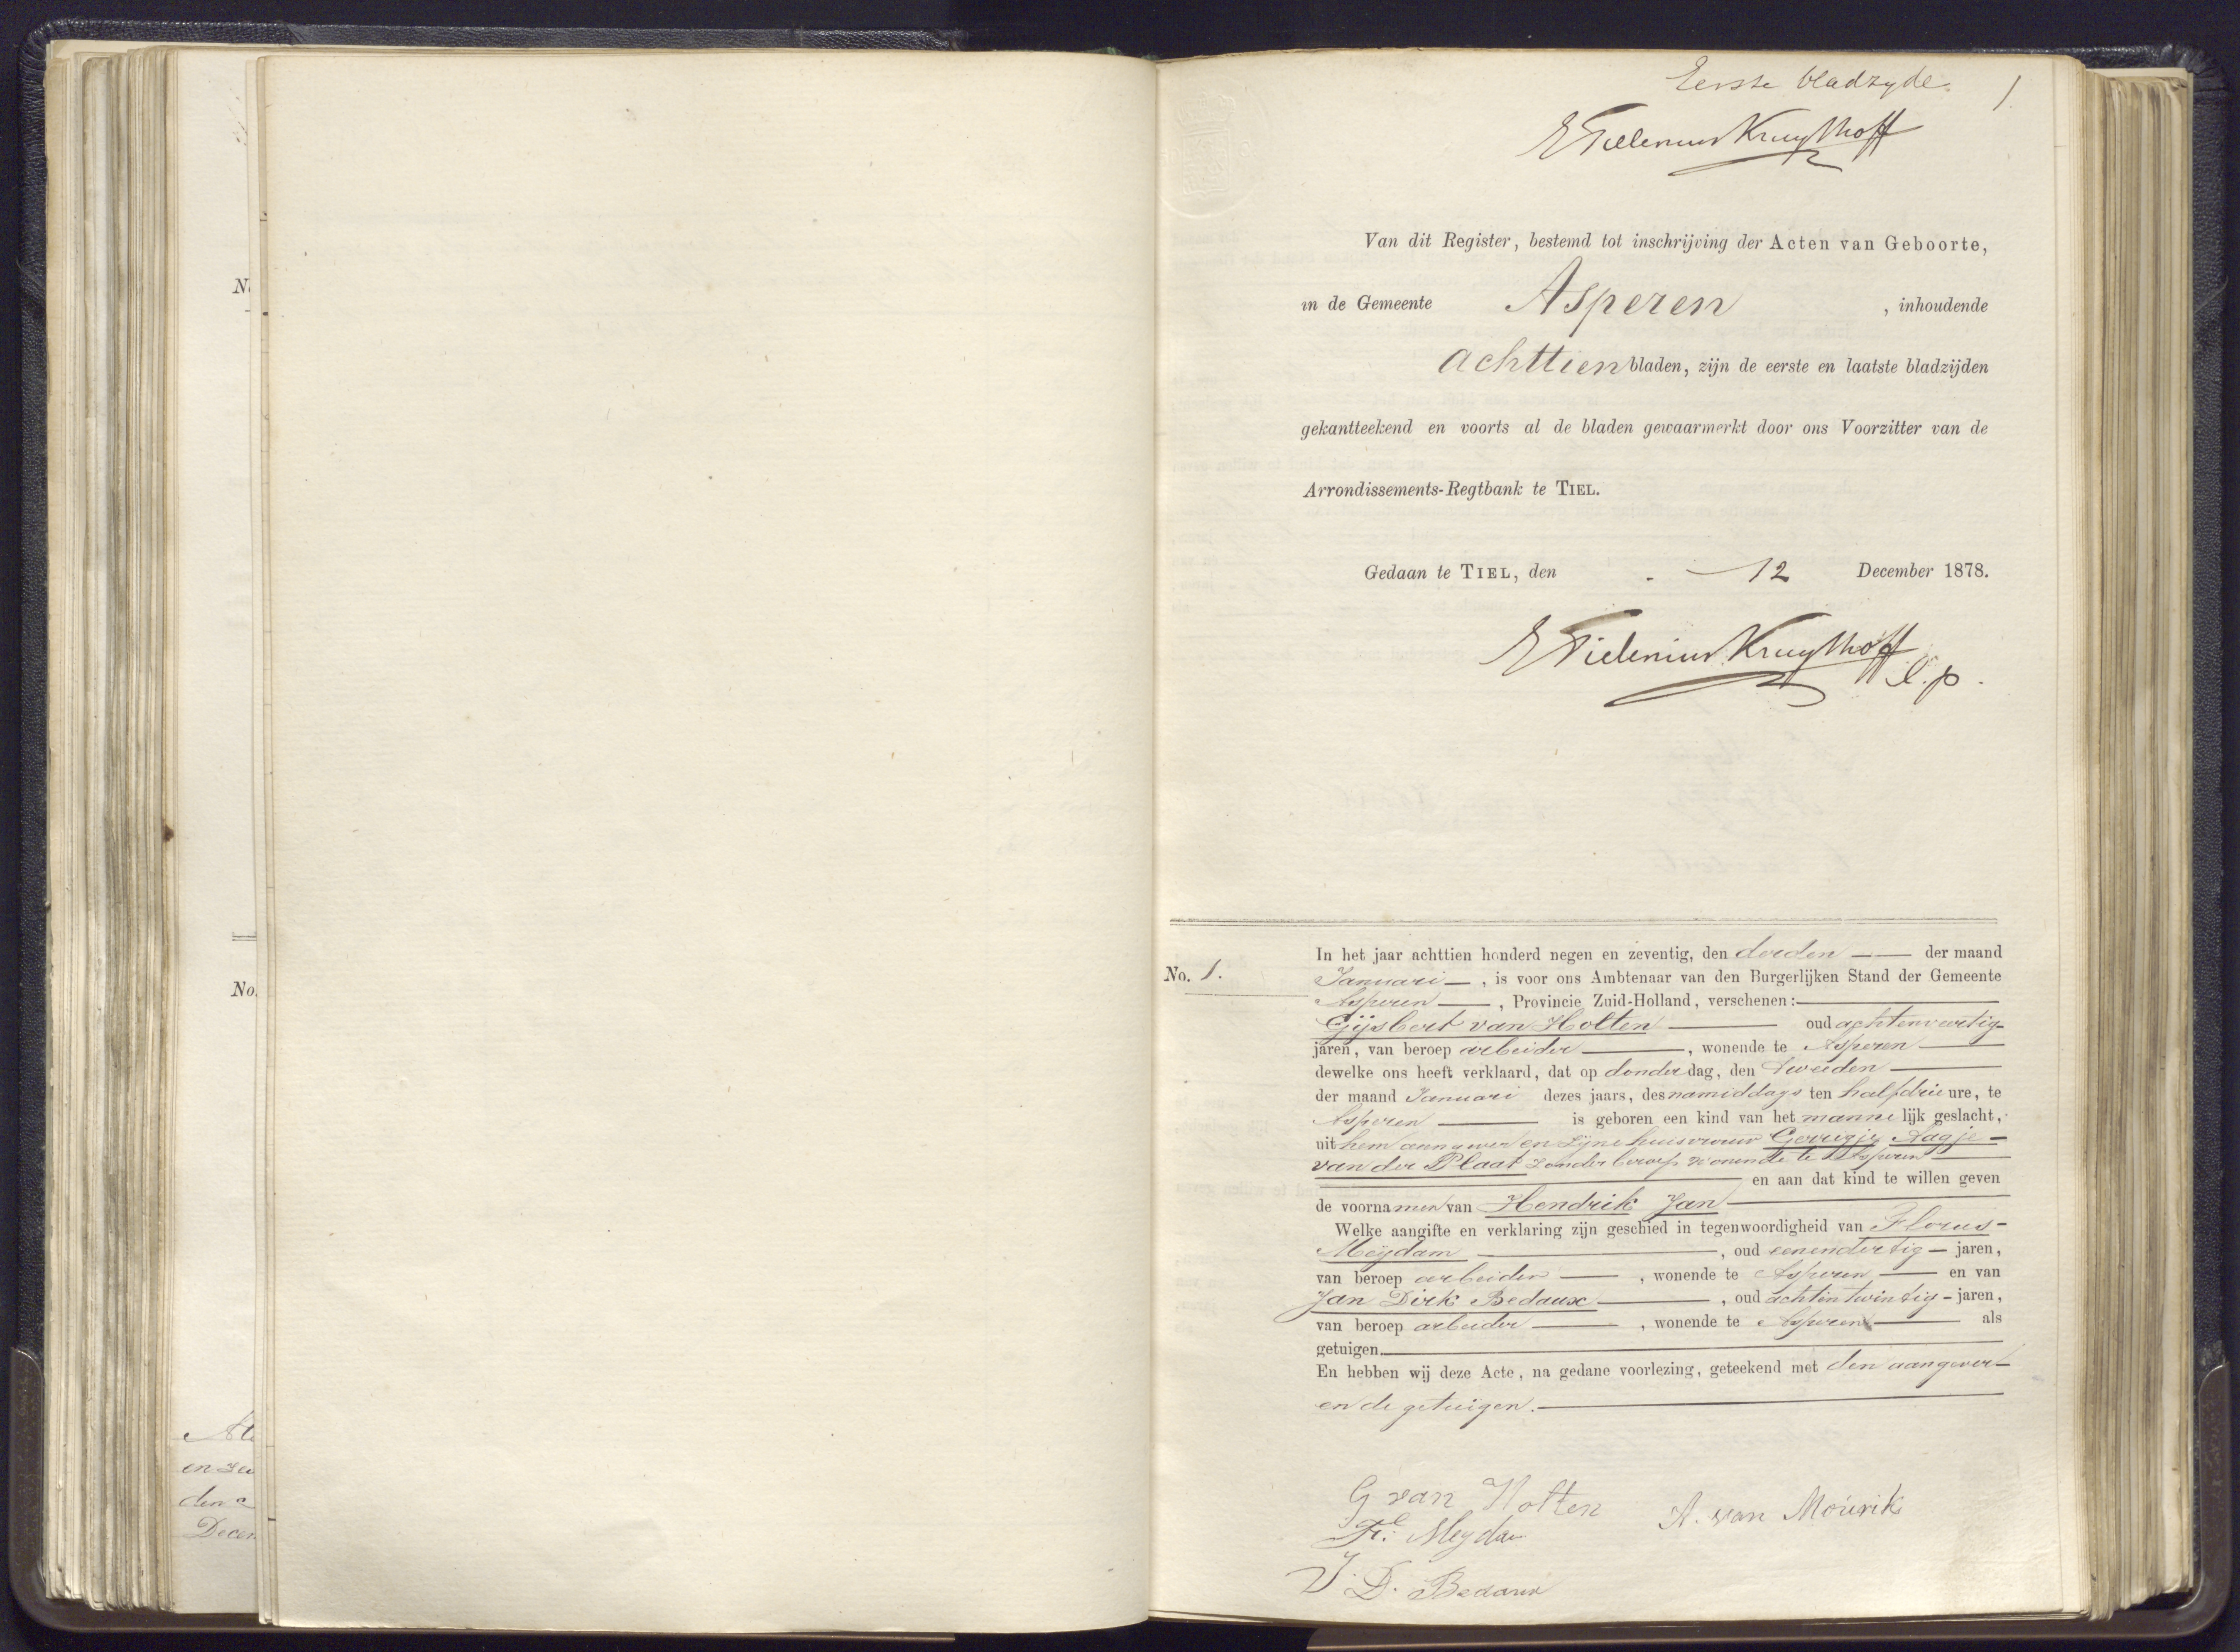 No.
No.
en
den
Decem
Eerste bladzyde. 1
E Tielenius Kruythoff
Van dit Register, bestemd tot inschrijving der Acten van Geboorte,
in de Gemeente Asperen, inhoudende
achttien bladen, zijn de eerste en laatste bladzijden
gekantteekend en voorts al de bladen gewaarmerkt door ons Voorzitter van de
Arrondissements-Regtbank te TIEL.
Gedaan te TIEL, den 12 December 1878.
E Tielenius Kruythoff
l.p.
No. 1.
In het jaar achttien honderd negen en zeventig, den derden der maand
Januari, is voor ons Ambtenaar van den Burgerlijken Stand der Gemeente
Asperen, Provincie Zuid-Holland, verschenen:
Gijsbert van Holten oud achtenveertig
jaren, van beroep arbeider, wonende te Asperen
dewelke ons heeft verklaard, dat op donderdag, den tweeden
der maand Januari dezes jaars, des namiddags ten half drie ure, te
Asperen is geboren een kind van het mannelijk geslacht,
uit hem aangever en zijne huisvrouw Gerrigje Aagje
van der Plaat zonder beroep wonende te Asperen
en aan dat kind te willen geven
de voornamen van Hendrik Jan
Welke aangifte en verklaring zijn geschied in tegenwoordigheid van Florus
Meijdam, oud eenendertig jaren,
van beroep arbeider, wonende te Asperen en van
Jan Dirk Bedaux, oud achtentwintig jaren,
van beroep arbeider, wonende te Asperen als
getuigen.
En hebben wij deze Acte, na gedane voorlezing, geteekend met den aangever
en de getuigen.
G van Holten A. van Mourik
Fl: Meydam
J. D. Bedaux